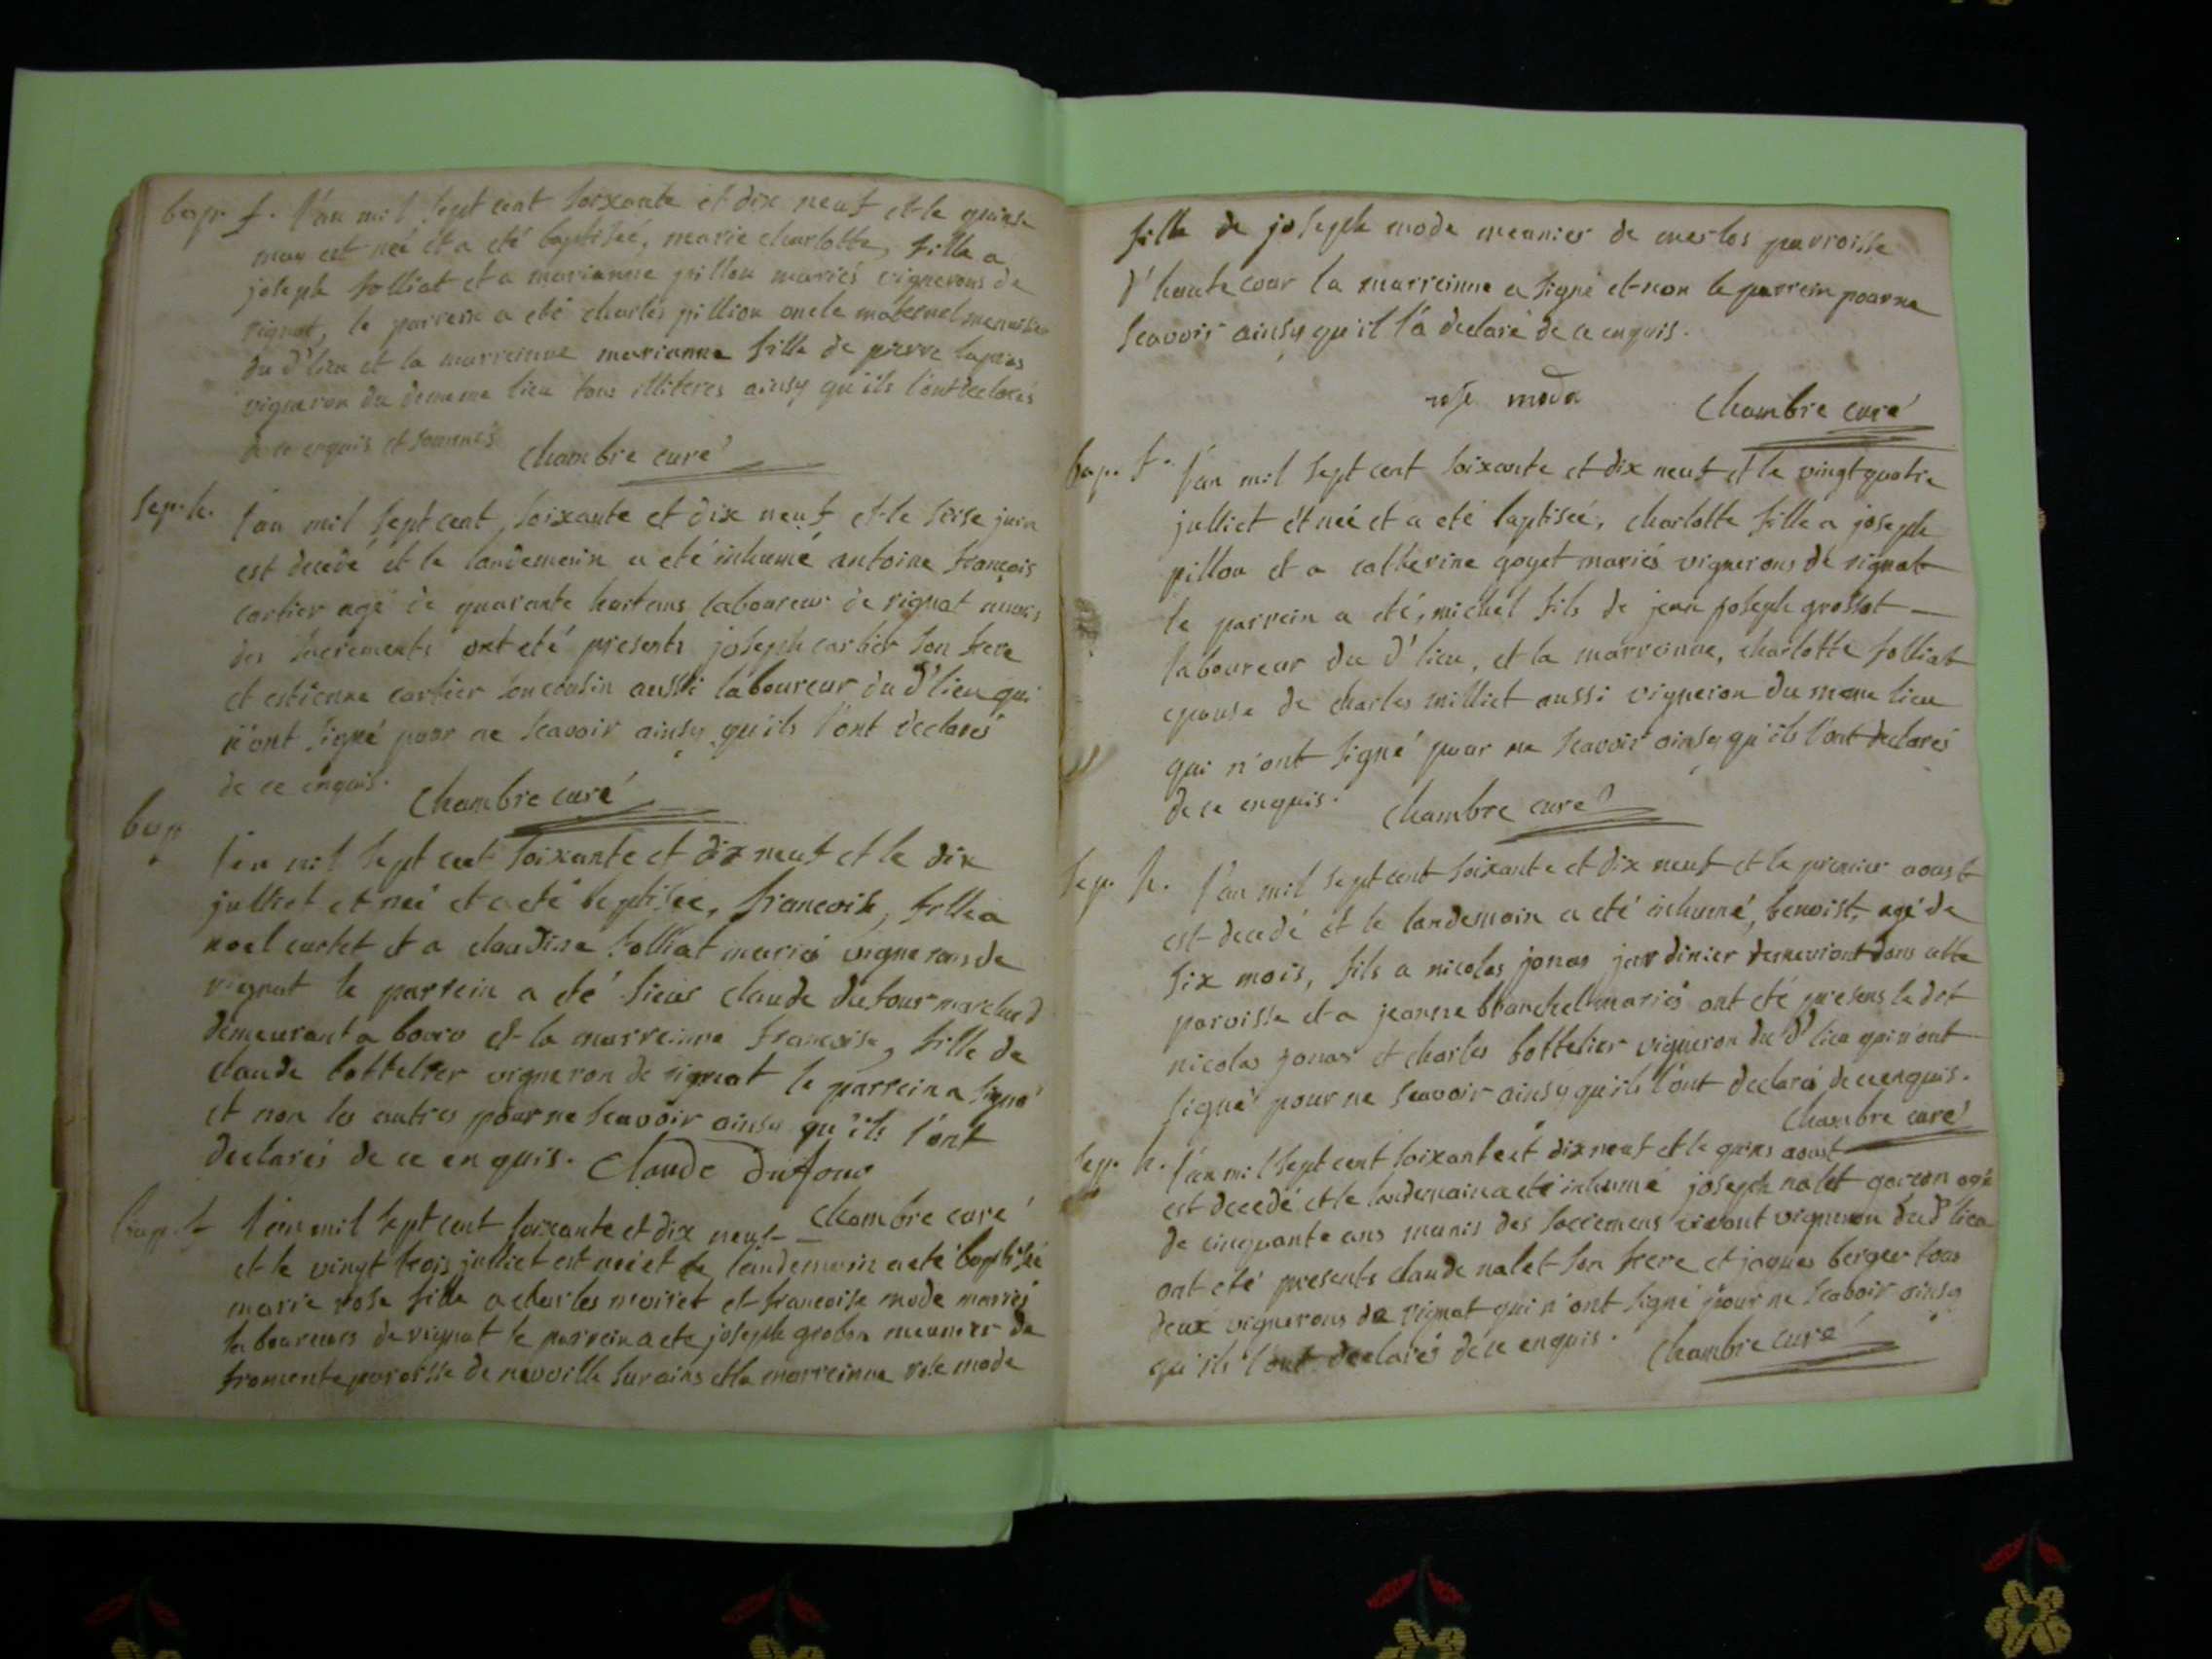 bap. f. l'an mil sept cent soixante et dix neuf et le quinse
may est neé et a eté baptiseé, marie charlotte, fille a
joseph folliat et a marianne pillon mariés vignerons de
rignat, le parrein a eté charles pillion oncle maternel menuisier
du d' lieu et la marreinne marianne fille de pierre
vigneron du meme lieu tous illiteres ainsy qu'ils l'ont declarés
de ce enquis et sommés
chambre curé
sep. h. l'an mil sept cent soixante et dix neuf et le seise juin
est decedé et le landemain a eté inhumé antoine françois
cartier agé de quarante huit ans laboureur de rignat munis
des sacrements ont eté presents joseph cartier son frere
et estienne cartier son cousin aussi laboureur du d' lieu qui
n'ont signé pour ne scavoir ainsy qu'ils l'ont declarés
de ce enquis.
chambre curé
bap
l'an mil sept cent soixante et dix neuf et le dix
julliet et neé et a eté baptisée, francoise, fille a
noel curtet et a claudine folliat mariés vignerons de
rignat le parrein a eté sieur claude dufour marchand
demeurant a bourg et la marreinne francoise, fille de
claude bottelier vigneron de rignat le parrein a signé
et non les autres pour ne scavoir ainsy qu'ils l'ont
declarés de ce enquis. Claude Dufour
chambre curé
bap. f l'an mil sept cent soixante et dix neuf
et le vingt trois julliet est neé et le landemain a eté baptiseé
marie rose fille a charles moiret et francoise mode mariés
laboureurs de rignat le parrein a ete joseph grobon meunier de
fromente paroisse de neuville sur ains et la marreinne rose mode
fille de joseph mode meunier de merlos parroisse
d'hautecour la marreinne a signé et non le parrein pour ne
scavoir ainsy qu'il l'a declaré de ce enquis.
rose moda
chambre curé
bap. f. l'an mil sept cent soixante et dix neuf et le vingt quatre
julliet et neé et a eté baptiseé, charlotte fille a joseph
pillon et a catherine goyet mariés vignerons de rignat
le parrein a eté, michel fils de jean joseph grossat
laboureur du d' lieu, et la marreinne, charlotte folliat
epouse de charles milliet aussi vigneron du meme lieu
qui n'ont signé pour ne scavoir ainsy qu'ils l'ont declarés
de ce enquis.
chambre curé
sep. h. l'an mil sept cent soixante et dix neuf et le premier aoust
est decedé et le landemain a eté inhumé, benoist, agé de
six mois, fils a nicolas jonas jardinier demeurant dans cette
paroisse et a jeanne blanchet mariés ont eté presens le dit
nicolas jonas et charles bottelier vigneron du d' lieu qui n'ont
signé pour ne scavoir ainsy qu'ils l'ont declaré de ce enquis.
chambre curé
sep. h. l'an mil sept cent soixante et dix neuf et le quins aoust
est decedé et le landemain a eté inhumé joseph nalet garcon agé
de cinquante ans munis des sacremens vivant vigneron du d' lieu
ont eté presents claude nalet son frere et jaques berger tous
deux vignerons de rignat qui n'ont signé pour ne scavoir ainsy
qu'ils l'ont declarés de ce enquis.
chambre curé